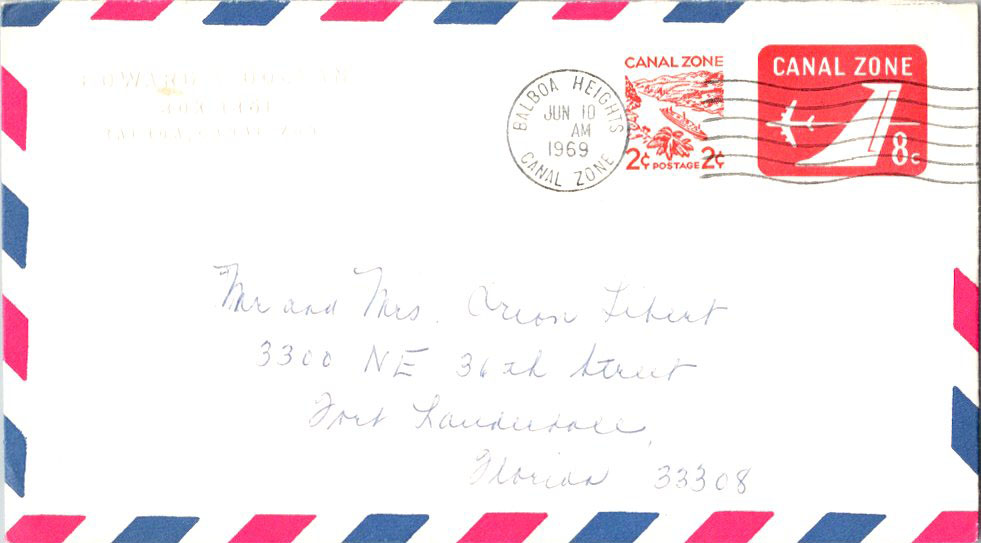 BALBOA HEIGHTS
JUN 10
AM
1969
CANAL ZONE
CANAL ZONE
2¢ POSTAGE 2¢
CANAL ZONE
8c
Mr and Mrs. Orion Libert
3300 NE 36th Street
Fort Lauderdale,
Florida 33308